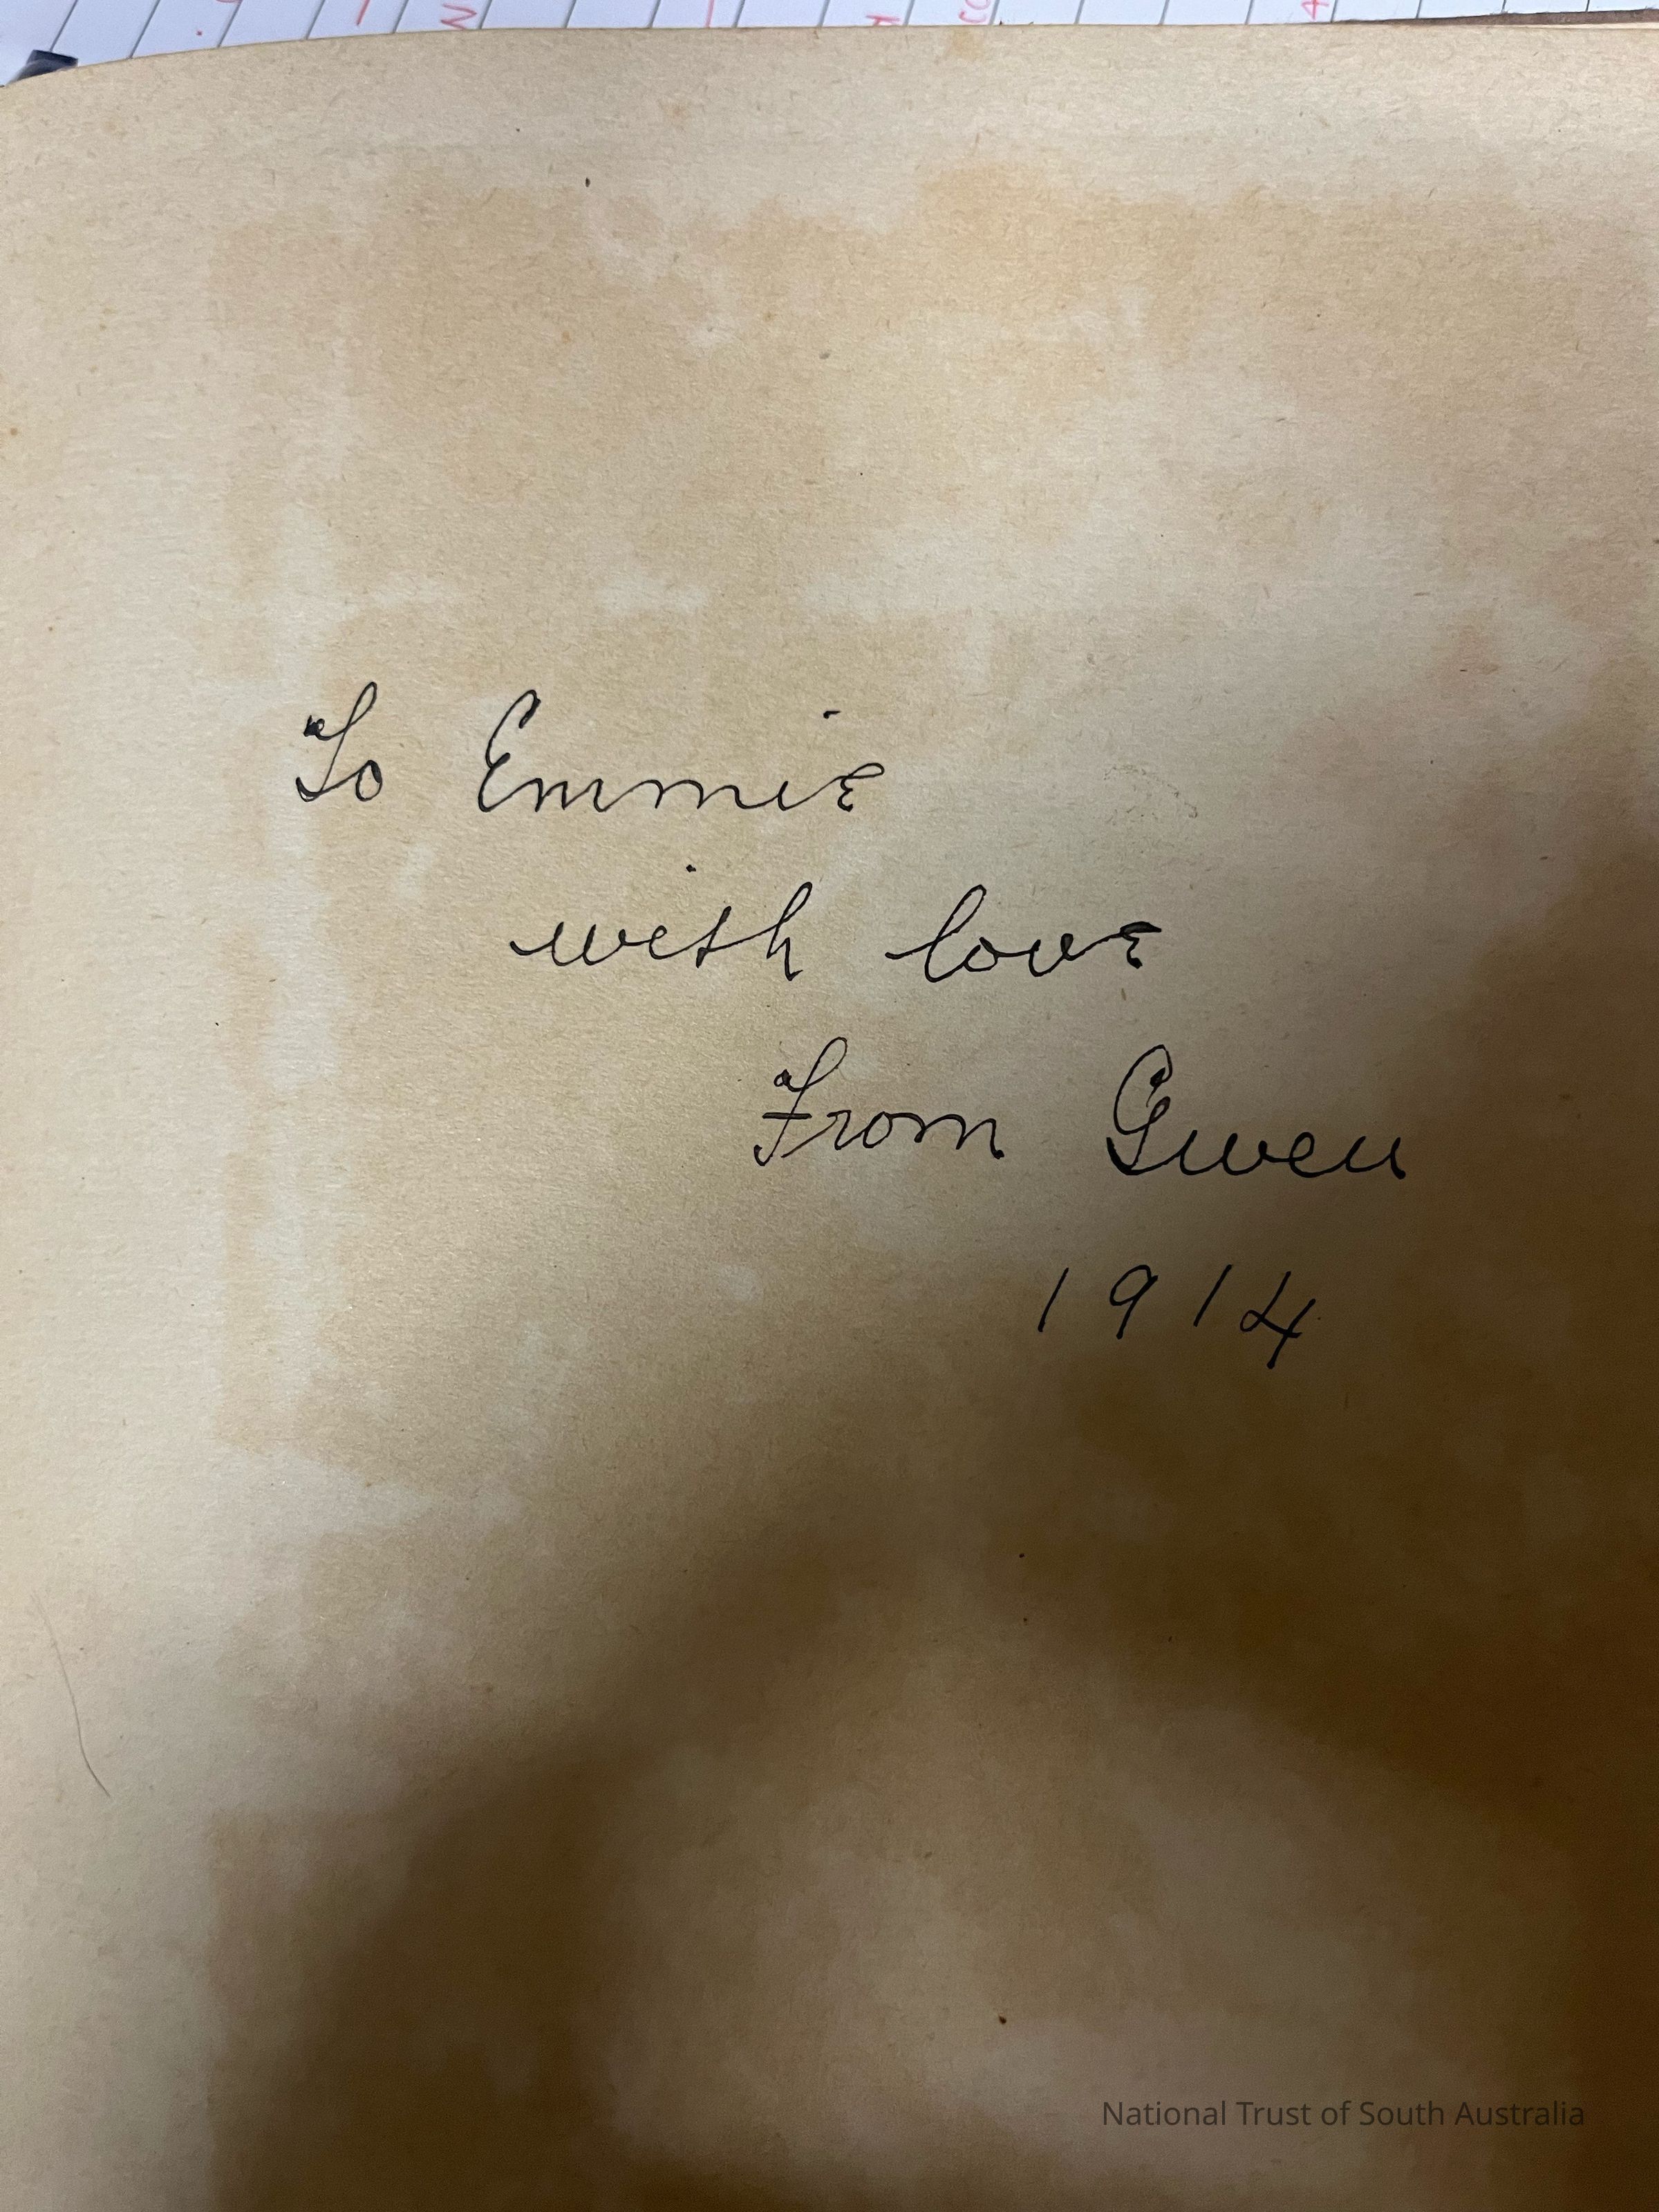 To Emmie
with love
From Gwen
1914
National Trust of South Australia